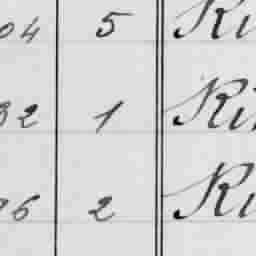 04 5 Ki
32 1 Ki
96 2 Ki